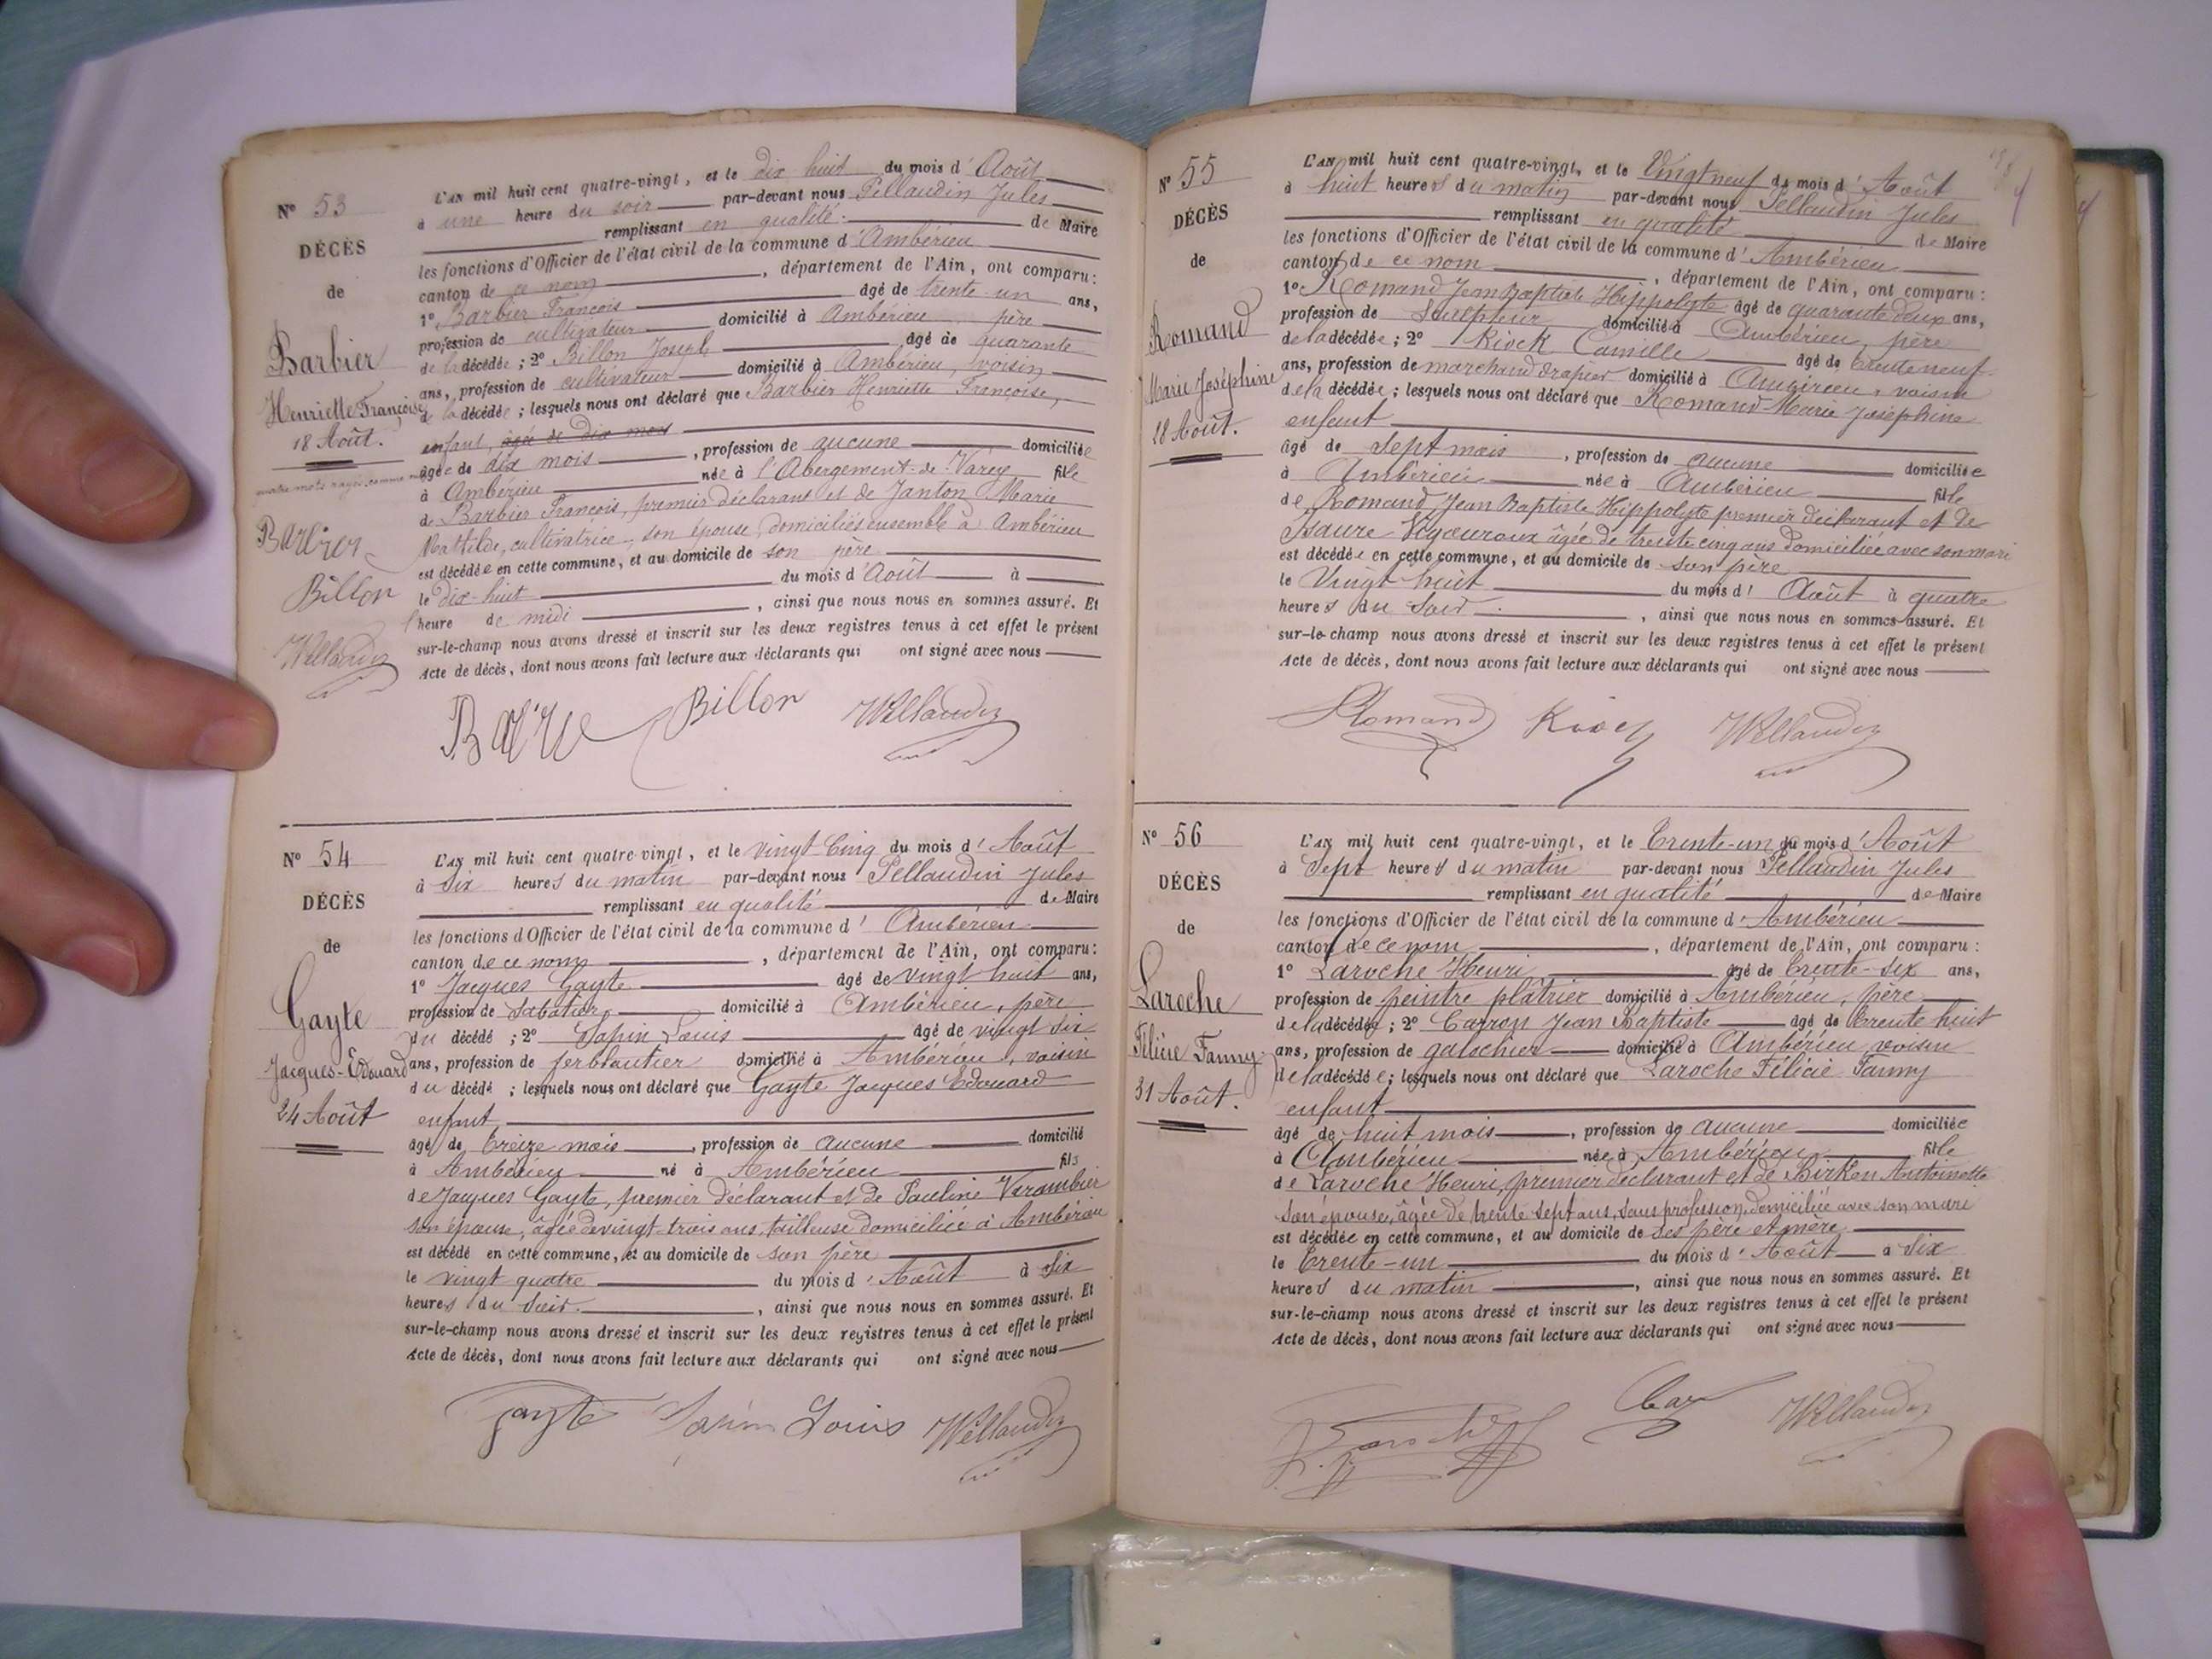 N° 53
DÉCÈS
de
Barbier
Henriette Françoise
18 Août.
quatre mots rayés comme nuls
Barbier
Billon
Pellaudin
L'an mil huit cent quatre-vingt, et le dix huit du mois d'Août
à une heure du soir par-devant nous Pellaudin Jules
remplissant en qualité de Maire
les fonctions d'Officier de l'état civil de la commune d'Ambérieu
canton de ce nom, département de l'Ain, ont comparu:
1° Barbier François âgé de trente-un ans,
profession de cultivateur domicilié à Ambérieu père
de la décédée; 2° Billon Joseph âgé de quarante
ans, profession de cultivateur domicilié à Ambérieu, voisin
de la décédée; lesquels nous ont déclaré que Barbier Henriette Françoise,
enfant, âgée de dix mois
âgée de dix mois, profession de aucune domiciliée
à Ambérieu née à l'Abergement-de-Varey fille
de Barbier François, premier déclarant et de Janton Marie
Mathilde, cultivatrice, son épouse, domiciliés ensemble à Ambérieu
est décédée en cette commune, et au domicile de son père
le dix-huit du mois d'Août à
l'heure de midi, ainsi que nous nous en sommes assuré. Et
sur-le-champ nous avons dressé et inscrit sur les deux registres tenus à cet effet le présent
Acte de décès, dont nous avons fait lecture aux déclarants qui ont signé avec nous
Billon Pellaudin
N° 54
DÉCÈS
de
Gayte
Jacques-Edouard
24 Août
L'an mil huit cent quatre-vingt, et le vingt cinq du mois d'Août
à six heures du matin par-devant nous Pellaudin Jules
remplissant en qualité de Maire
les fonctions d'Officier de l'état civil de la commune d'Ambérieu
canton de ce nom, département de l'Ain, ont comparu:
1° Jacques Gayte âgé de vingt huit ans,
profession de Sabotier domicilié à Ambérieu, père
du décédé; 2° Sapin Louis âgé de vingt six
ans, profession de ferblantier domicilié à Ambérieu, voisin
du décédé; lesquels nous ont déclaré que Gayte Jacques Edouard
enfant
âgé de treize mois, profession de aucune domicilié
à Ambérieu né à Ambérieu fils
de Jacques Gayte, premier déclarant et de Pauline Varambier
son épouse, âgée de vingt-trois ans, tailleuse domiciliée à Ambérieu
est décédé en cette commune, et au domicile de son père
le vingt quatre du mois d'Août à six
heures du soir., ainsi que nous nous en sommes assuré. Et
sur-le-champ nous avons dressé et inscrit sur les deux registres tenus à cet effet le présent
Acte de décès, dont nous avons fait lecture aux déclarants qui ont signé avec nous
Gayte Sapin Louis Pellaudin
N° 55
DÉCÈS
de
Romand
Marie Joséphine
28 Août.
L'an mil huit cent quatre-vingt, et le vingt neuf du mois d'Août
à huit heures du matin par-devant nous Pellaudin Jules
remplissant en qualité de Maire
les fonctions d'Officier de l'état civil de la commune d'Ambérieu
canton de ce nom, département de l'Ain, ont comparu:
1° Romand Jean Baptiste Hippolyte âgé de quarante deux ans,
profession de Sculpteur domicilié à Ambérieu, père
de la décédée; 2° Kioek Camille âgé de trente neuf
ans, profession de marchand drapier domicilié à Ambérieu, voisin
de la décédée; lesquels nous ont déclaré que Romand Marie Joséphine
enfant
âgé de Sept mois, profession de aucune domiciliée
à Ambérieu née à Ambérieu fille
de Romand Jean Baptiste Hippolyte premier déclarant et de
Isaure âgée de trente cinq ans domiciliée avec son mari
est décédée en cette commune, et au domicile de son père
le Vingt huit du mois d'Août à quatre
heures du Soir., ainsi que nous nous en sommes assuré. Et
sur-le-champ nous avons dressé et inscrit sur les deux registres tenus à cet effet le présent
Acte de décès, dont nous avons fait lecture aux déclarants qui ont signé avec nous
Romand Pellaudin
N° 56
DÉCÈS
de
Laroche
Félicie Fanny
31 Août.
L'an mil huit cent quatre-vingt, et le trente-un du mois d'Août
à Sept heures du matin par-devant nous Pellaudin Jules
remplissant en qualité de Maire
les fonctions d'Officier de l'état civil de la commune d'Ambérieu
canton de ce nom, département de l'Ain, ont comparu:
1° Laroche Henri âgé de trente-six ans,
profession de peintre plâtrier domicilié à Ambérieu, père
de la décédée; 2° Carron Jean Baptiste âgé de trente huit
ans, profession de galochier domicilié à Ambérieu voisin
de la décédée; lesquels nous ont déclaré que Laroche Félicie Fanny
enfant
âgé de huit mois, profession de aucune domiciliée
à Ambérieu née à Ambérieu fille
de Laroche Henri, premier déclarant et de Birken Antoinette
son épouse, âgée de trente sept ans, sans profession, domiciliée avec son mari
est décédée en cette commune, et au domicile de ses père et mère
le trente-un du mois d'Août à six
heures du matin, ainsi que nous nous en sommes assuré. Et
sur-le-champ nous avons dressé et inscrit sur les deux registres tenus à cet effet le présent
Acte de décès, dont nous avons fait lecture aux déclarants qui ont signé avec nous
Car Pellaudin